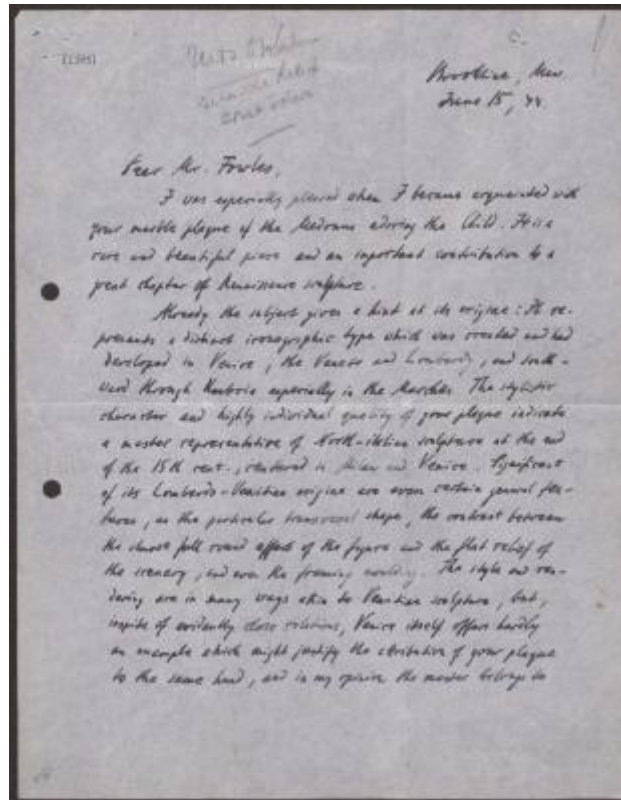 [1595]
Brookline, Mass.
June 15, 44.
Dear Mr. Fowles,
I was especially pleased when I became acquainted with
your marble plaque of the Madonna adoring the Child. It is a
rare and beautiful piece and an important contribution to a
great chapter of Renaissance sculpture.
Already the subject gives a hint at its origine: It re-
presents a distinct iconographic type which was created and had
developed in Venice, the Veneto and Lombardy, and south-
ward through Umbria especially in the Marches. The stylistic
character and highly individual quality of your plaque indicate
a master representative of North-italian sculpture at the end
of the 15th cent., centered in Milan and Venice. Significant
of its Lombardo-Venitian origine are even certain general fea-
tures, as the particular transversal shape, the contrast between
the almost full round effect of the figure and the flat relief of
the scenery, and even the framing moulding. The style and ren-
dering are in many ways akin to Venitian sculpture, but,
inspite of evidently close relations, Venice itself offers hardly
an example which might justify the attribution of your plaque
to the same hand, and in my opinion the master belongs to